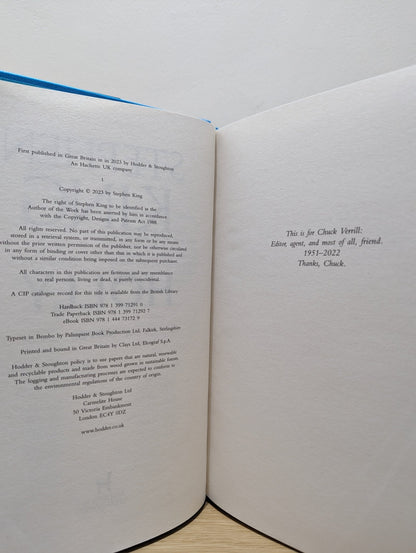 First published in Great Britain in in 2023 by Hodder & Stoughton
An Hachette UK company
1
Copyright © 2023 by Stephen King
The right of Stephen King to be identified as the
Author of the Work has been asserted by him in accordance
with the Copyright, Designs and Patents Act 1988.
All rights reserved. No part of this publication may be reproduced,
stored in a retrieval system, or transmitted, in any form or by any means
without the prior written permission of the publisher, nor be otherwise circulated
in any form of binding or cover other than that in which it is published and
without a similar condition being imposed on the subsequent purchaser.
All characters in this publication are fictitious and any resemblance
to real persons, living or dead, is purely coincidental.
A CIP catalogue record for this title is available from the British Library
Hardback ISBN 978 1 399 71291 0
Trade Paperback ISBN 978 1 399 71292 7
eBook ISBN 978 1 444 73172 9
Typeset in Bembo by Palimpsest Book Production Ltd, Falkirk, Stirlingshire
Printed and bound in Great Britain by Clays Ltd, Elcograf S.p.A.
Hodder & Stoughton policy is to use papers that are natural, renewable
and recyclable products and made from wood grown in sustainable forests.
The logging and manufacturing processes are expected to conform to
the environmental regulations of the country of origin.
Hodder & Stoughton Ltd
Carmelite House
50 Victoria Embankment
London EC4Y 0DZ
www.hodder.co.uk
This is for Chuck Verrill:
Editor, agent, and most of all, friend.
1951–2022
Thanks, Chuck.